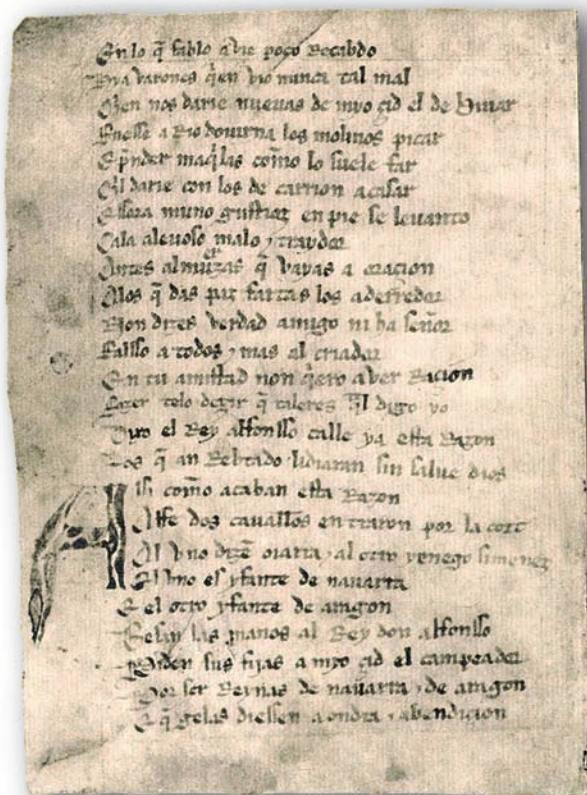 En lo q̃ fablo avie poco Recabdo
Hya varones q̃en vio nunca tal mal
Q̃en nos darie nuevas de myo çid el de bivar
Fuesse a Rio dovirna los molinos picar
E p̃nder maq̃las commo lo suele far
Q̃il darie con los de carrion a casar
Essora muno gustioz en pie se levanto
Cala alevoso malo & traydor
Antes almuerzas q̃ vayas a oracion
A los q̃ das paz fartas los aderredor
Non dizes verdad amigo ni ha señor
Falsso a todos & mas al criador
En tu amistad non q̃ero aver Racion
Fazer telo dezir q̃ tal eres q̃l digo yo
Dixo el Rey alfonsso calle ya esta Razon
Los q̃ an Rebtado lidiaran sin salve dios
Assi commo acaban esta Razon
Affe dos cavalleros entraron por la cort
Al uno dizen oiarra & al otro yenego simenez
El uno es yfante de navarra
E el otro yfante de aragon
Besan las manos al Rey don alfonsso
Piden sus fijas a myo çid el campeador
Por ser Reinas de navarra & de aragon
E q̃ gelas diessen a ondra & a bendicion